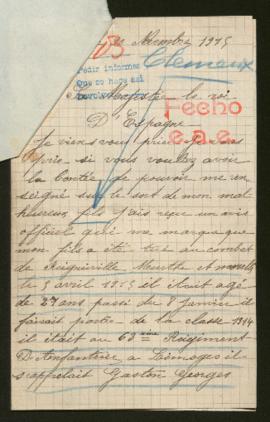 Novembre 1915
Pedir informes
Que se hace así
Clemeux
Majestée le roi
D'Espagne
Fecho
e.a.e.
Je viens vous prier Je vous
prie si vous voulez avoir
la Bontée de pouvoir me ren
seigné sur le sort de mon mal
heureux fils J'ais reçue un avis
officiel qui me marque que
mon fils a été tué au combat
de Regniéville Meurthe et moselle
le 5 avril 1915 il était agé
de 27 ans passé du 8 Janvier il
faisait partie de la classe 1914
il était au 63 ième Régiment
D'Infanterie a Limoges il
s'appelait Gaston Georges